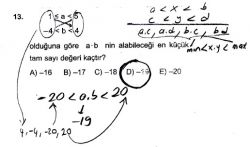 13.
1 < a < 5
-4 < b < 4
a < x < b
c < y < d
a.c, a.d, b.c, b.d
min < x.y < max
olduğuna göre a·b nin alabileceği en küçük
tam sayı değeri kaçtır?
A) –16 B) –17 C) –18 D) –19 E) –20
-20 < a.b < 20
-19
4, -4, -20, 20